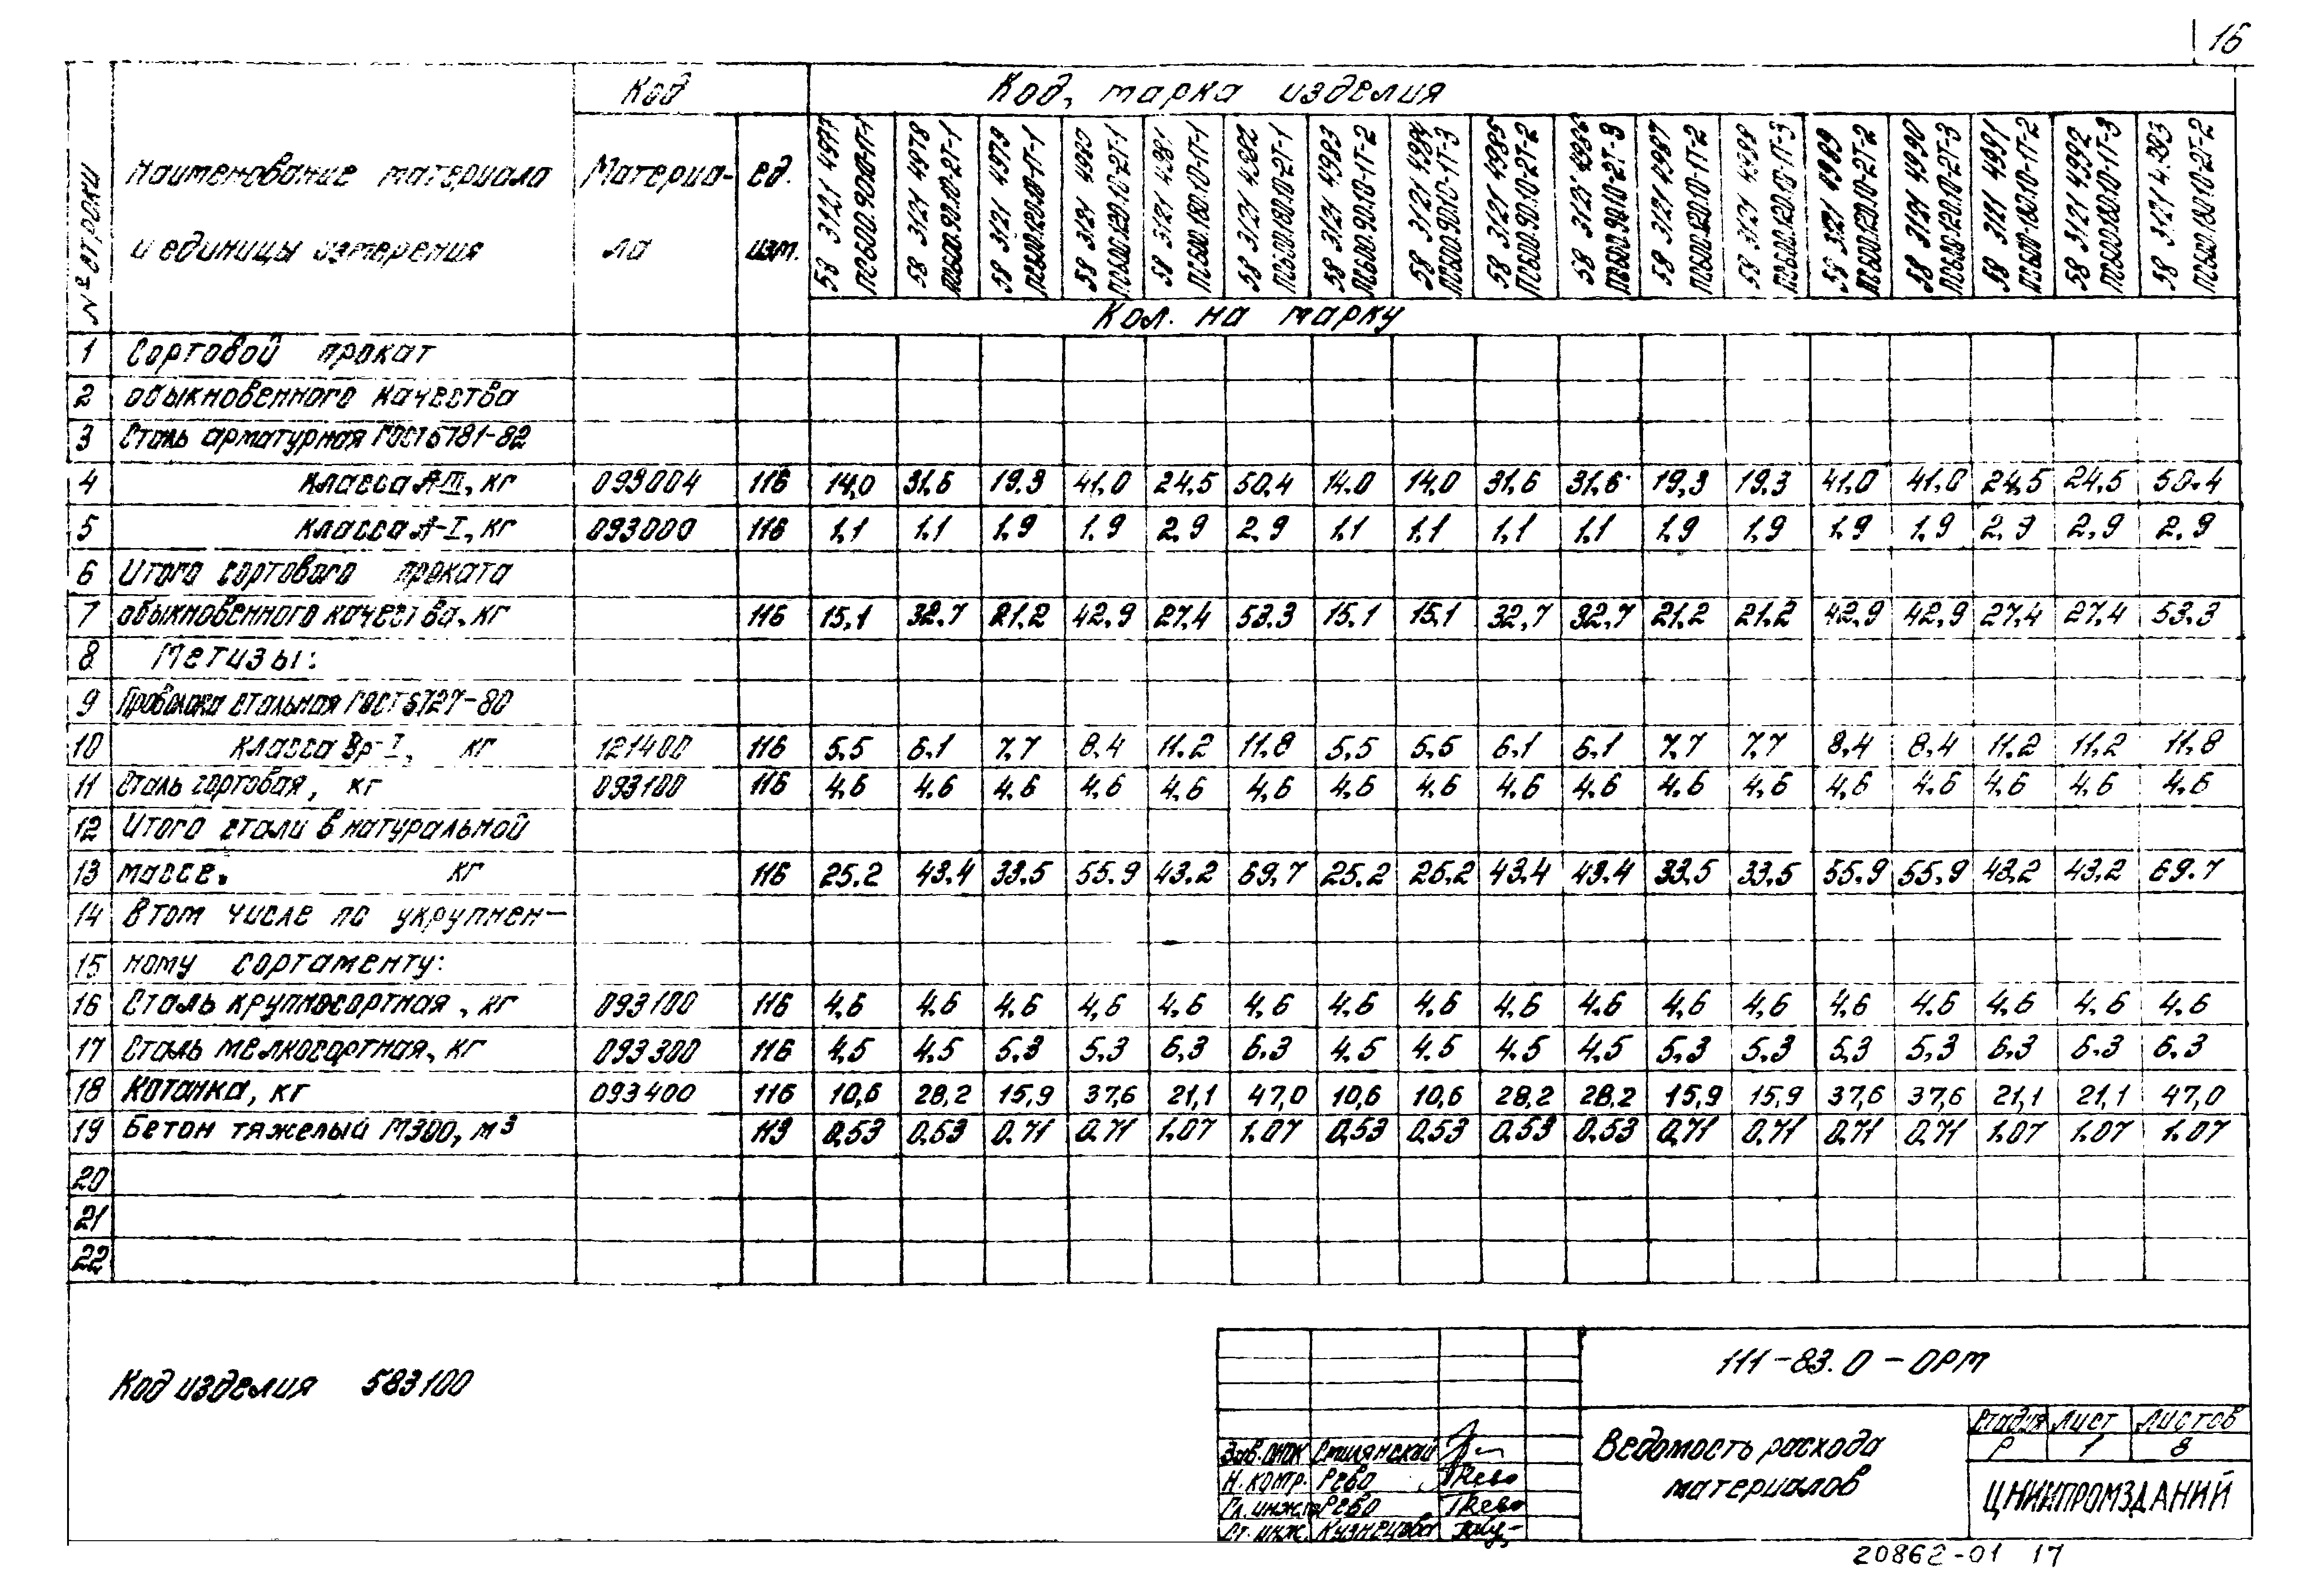 16
№ строки Наименование материала и единицы измерения Код Код, марка изделия
Материала ед. изм.
58 3121 4977 ПС600.90.10-1Т-1
58 3121 4978 ПС600.90.10-2Т-1
58 3121 4979 ПС600.120.10-1Т-1
58 3121 4980 ПС600.120.10-2Т-1
58 3121 4981 ПС600.180.10-1Т-1
58 3121 4982 ПС600.180.10-2Т-1
58 3121 4983 ПС600.90.10-1Т-2
58 3121 4984 ПС600.90.10-1Т-3
58 3121 4985 ПС600.90.10-2Т-2
58 3121 4986 ПС600.90.10-2Т-3
58 3121 4987 ПС600.120.10-1Т-2
58 3121 4988 ПС600.120.10-1Т-3
58 3121 4989 ПС600.120.10-2Т-2
58 3121 4990 ПС600.120.10-2Т-3
58 3121 4991 ПС600.180.10-1Т-2
58 3121 4992 ПС600.180.10-1Т-3
58 3121 4993 ПС600.180.10-2Т-2
Кол. на марку
1 Сортовой прокат
2 обыкновенного качества
3 Сталь арматурная ГОСТ 5781-82
4 Класса А-III, кг 093004 116 14,0 31,6 19,3 41,0 24,5 50,4 14,0 14,0 31,6 31,6 19,3 19,3 41,0 41,0 24,5 24,5 50.4
5 Класса А-I, кг 093000 116 1,1 1,1 1,9 1,9 2,9 2,9 1,1 1,1 1,1 1,1 1,9 1,9 1,9 1,9 2,9 2,9 2,9
6 Итого сортового проката
7 обыкновенного качества, кг 116 15,1 32,7 21,2 42,9 27,4 53,3 15,1 15,1 32,7 32,7 21,2 21,2 42,9 42,9 27,4 27,4 53,3
8 Метизы:
9 Проволока стальная ГОСТ 6727-80
10 Класса Вр-I, кг 121400 116 5,5 6,1 7,7 8,4 11,2 11,8 5,5 5,5 6,1 6,1 7,7 7,7 8,4 8,4 11,2 11,2 11,8
11 Сталь сортовая, кг 093100 116 4,6 4,6 4,6 4,6 4,6 4,6 4,6 4,6 4,6 4,6 4,6 4,6 4,6 4,6 4,6 4,6 4,6
12 Итого стали в натуральной
13 массе. кг 116 25,2 43,4 33,5 55,9 43,2 69,7 25,2 25,2 43,4 43,4 33,5 33,5 55,9 55,9 43,2 43,2 69,7
14 В том числе по укрупнен-
15 ному сортаменту:
16 Сталь крупносортная, кг 093100 116 4,6 4,6 4,6 4,6 4,6 4,6 4,6 4,6 4,6 4,6 4,6 4,6 4,6 4,6 4,6 4,6 4,6
17 Сталь мелкосортная, кг 093300 116 4,5 4,5 5,3 5,3 6,3 6,3 4,5 4,5 4,5 4,5 5,3 5,3 5,3 5,3 6,3 6,3 6,3
18 Катанка, кг 093400 116 10,6 28,2 15,9 37,6 21,1 47,0 10,6 10,6 28,2 28,2 15,9 15,9 37,6 37,6 21,1 21,1 47,0
19 Бетон тяжелый М300, м³ 113 0,53 0,53 0,71 0,71 1,07 1,07 0,53 0,53 0,53 0,53 0,71 0,71 0,71 0,71 1,07 1,07 1,07
20
21
22
Код изделия 583100
111-83.0-ОРМ
Ведомость расхода
материалов
Стадия Лист Листов
Р 1 8
ЦНИИПРОМЗДАНИЙ
Н. контр. Рево
Гл. инж.пр Рево
Ст. инж. Кузнецова
20862-01 17